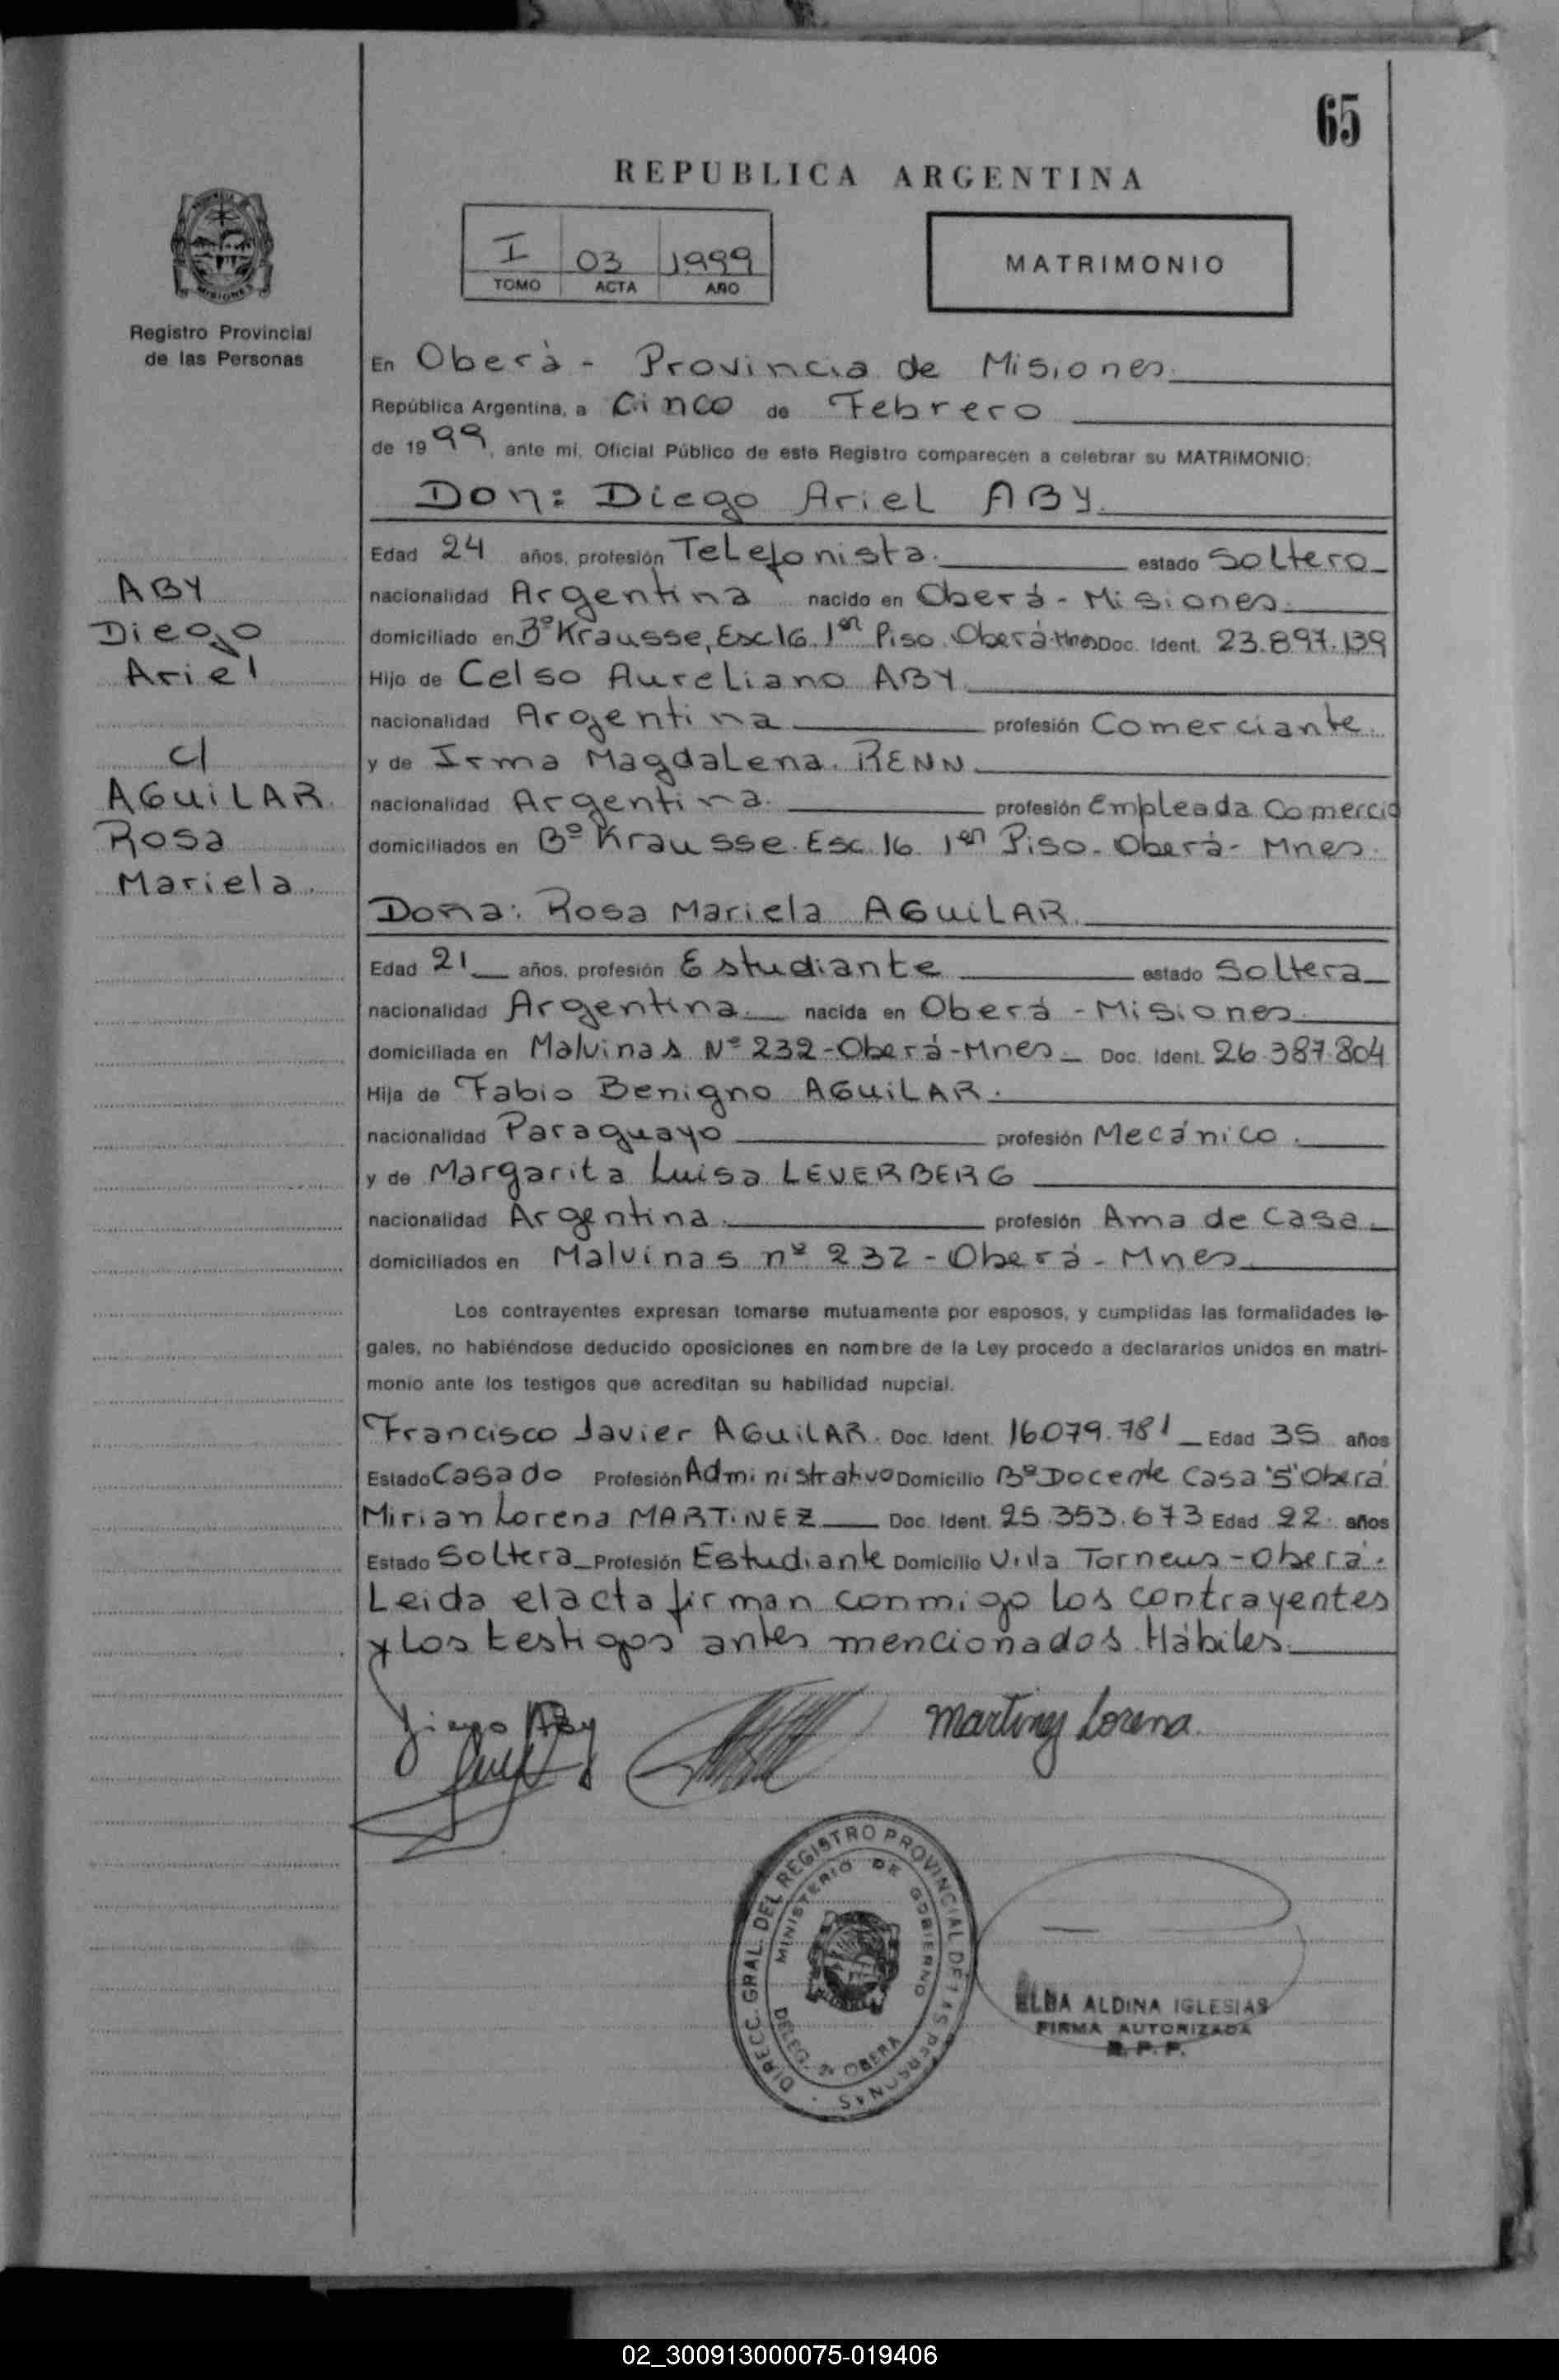 65
REPUBLICA ARGENTINA
I 03 1999
TOMO ACTA AÑO
MATRIMONIO
MISIONES
Registro Provincial
de las Personas
En Oberà - Provincia de Misiones.
República Argentina, a Cinco de Febrero
de 1999, ante mí, Oficial Público de este Registro comparecen a celebrar su MATRIMONIO:
Don: Diego Ariel ABY.
ABY
Diego
Ariel
c/
AGUILAR.
Rosa
Mariela.
Edad 24 años, profesión Telefonista. estado Soltero
nacionalidad Argentina nacido en Oberá - Misiones.
domiciliado en Bº Krausse, Esc 16 1er Piso. Oberá-Mnes Doc. Ident. 23.897.139
Hijo de Celso Aureliano ABY.
nacionalidad Argentina profesión Comerciante.
y de Irma Magdalena. RENN.
nacionalidad Argentina. profesión Empleada Comercio
domiciliados en Bº Krausse. Esc. 16 1er Piso - Oberá - Mnes.
Doña: Rosa Mariela AGUILAR.
Edad 21 años, profesión Estudiante estado Soltera
nacionalidad Argentina. nacida en Oberá - Misiones.
domiciliada en Malvinas Nº 232 - Oberá - Mnes Doc. Ident. 26.387.804
Hija de Fabio Benigno AGUILAR.
nacionalidad Paraguayo profesión Mecánico.
y de Margarita Luisa LEVERBERG
nacionalidad Argentina. profesión Ama de Casa
domiciliados en Malvinas nº 232 - Oberá - Mnes.
Los contrayentes expresan tomarse mutuamente por esposos, y cumplidas las formalidades le-
gales, no habiéndose deducido oposiciones en nombre de la Ley procedo a declararlos unidos en matri-
monio ante los testigos que acreditan su habilidad nupcial.
Francisco Javier AGUILAR. Doc. Ident. 16.079.781 Edad 35 años
Estado Casado Profesión Administrativo Domicilio Bº Docente Casa "5" Oberá
Mirian Lorena MARTINEZ Doc. Ident. 25.353.673 Edad 22 años
Estado Soltera Profesión Estudiante Domicilio Villa Torneus - Oberá.
Leida el acta firman conmigo los contrayentes
y los testigos antes mencionados Hábiles.
Diego Aby
Martinez Lorena.
DIRECC. GRAL. DEL REGISTRO PROVINCIAL DE LAS PERSONAS
MINISTERIO DE GOBIERNO
DELEG. 2ª OBERA
ELBA ALDINA IGLESIAS
FIRMA AUTORIZADA
R. P. P.
02_300913000075-019406